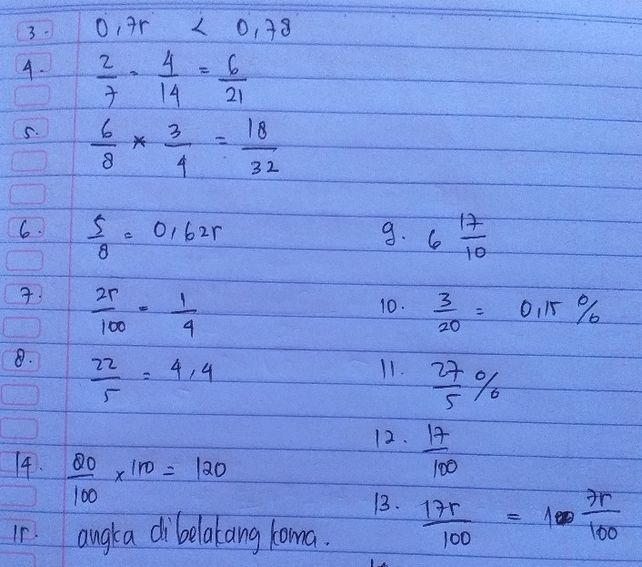 3. 0,75 < 0,78
4. 2/7 = 4/14 = 6/21
5. 6/8 × 3/4 = 18/32
6. 5/8 = 0,625
7. 25/100 = 1/4
8. 22/5 = 4,4
14. 80/100 × 150 = 120
15. angka dibelakang koma.
9. 6 17/10
10. 3/20 = 0,15 %
11. 27/5 %
12. 17/100
13. 175/100 = 1 75/100